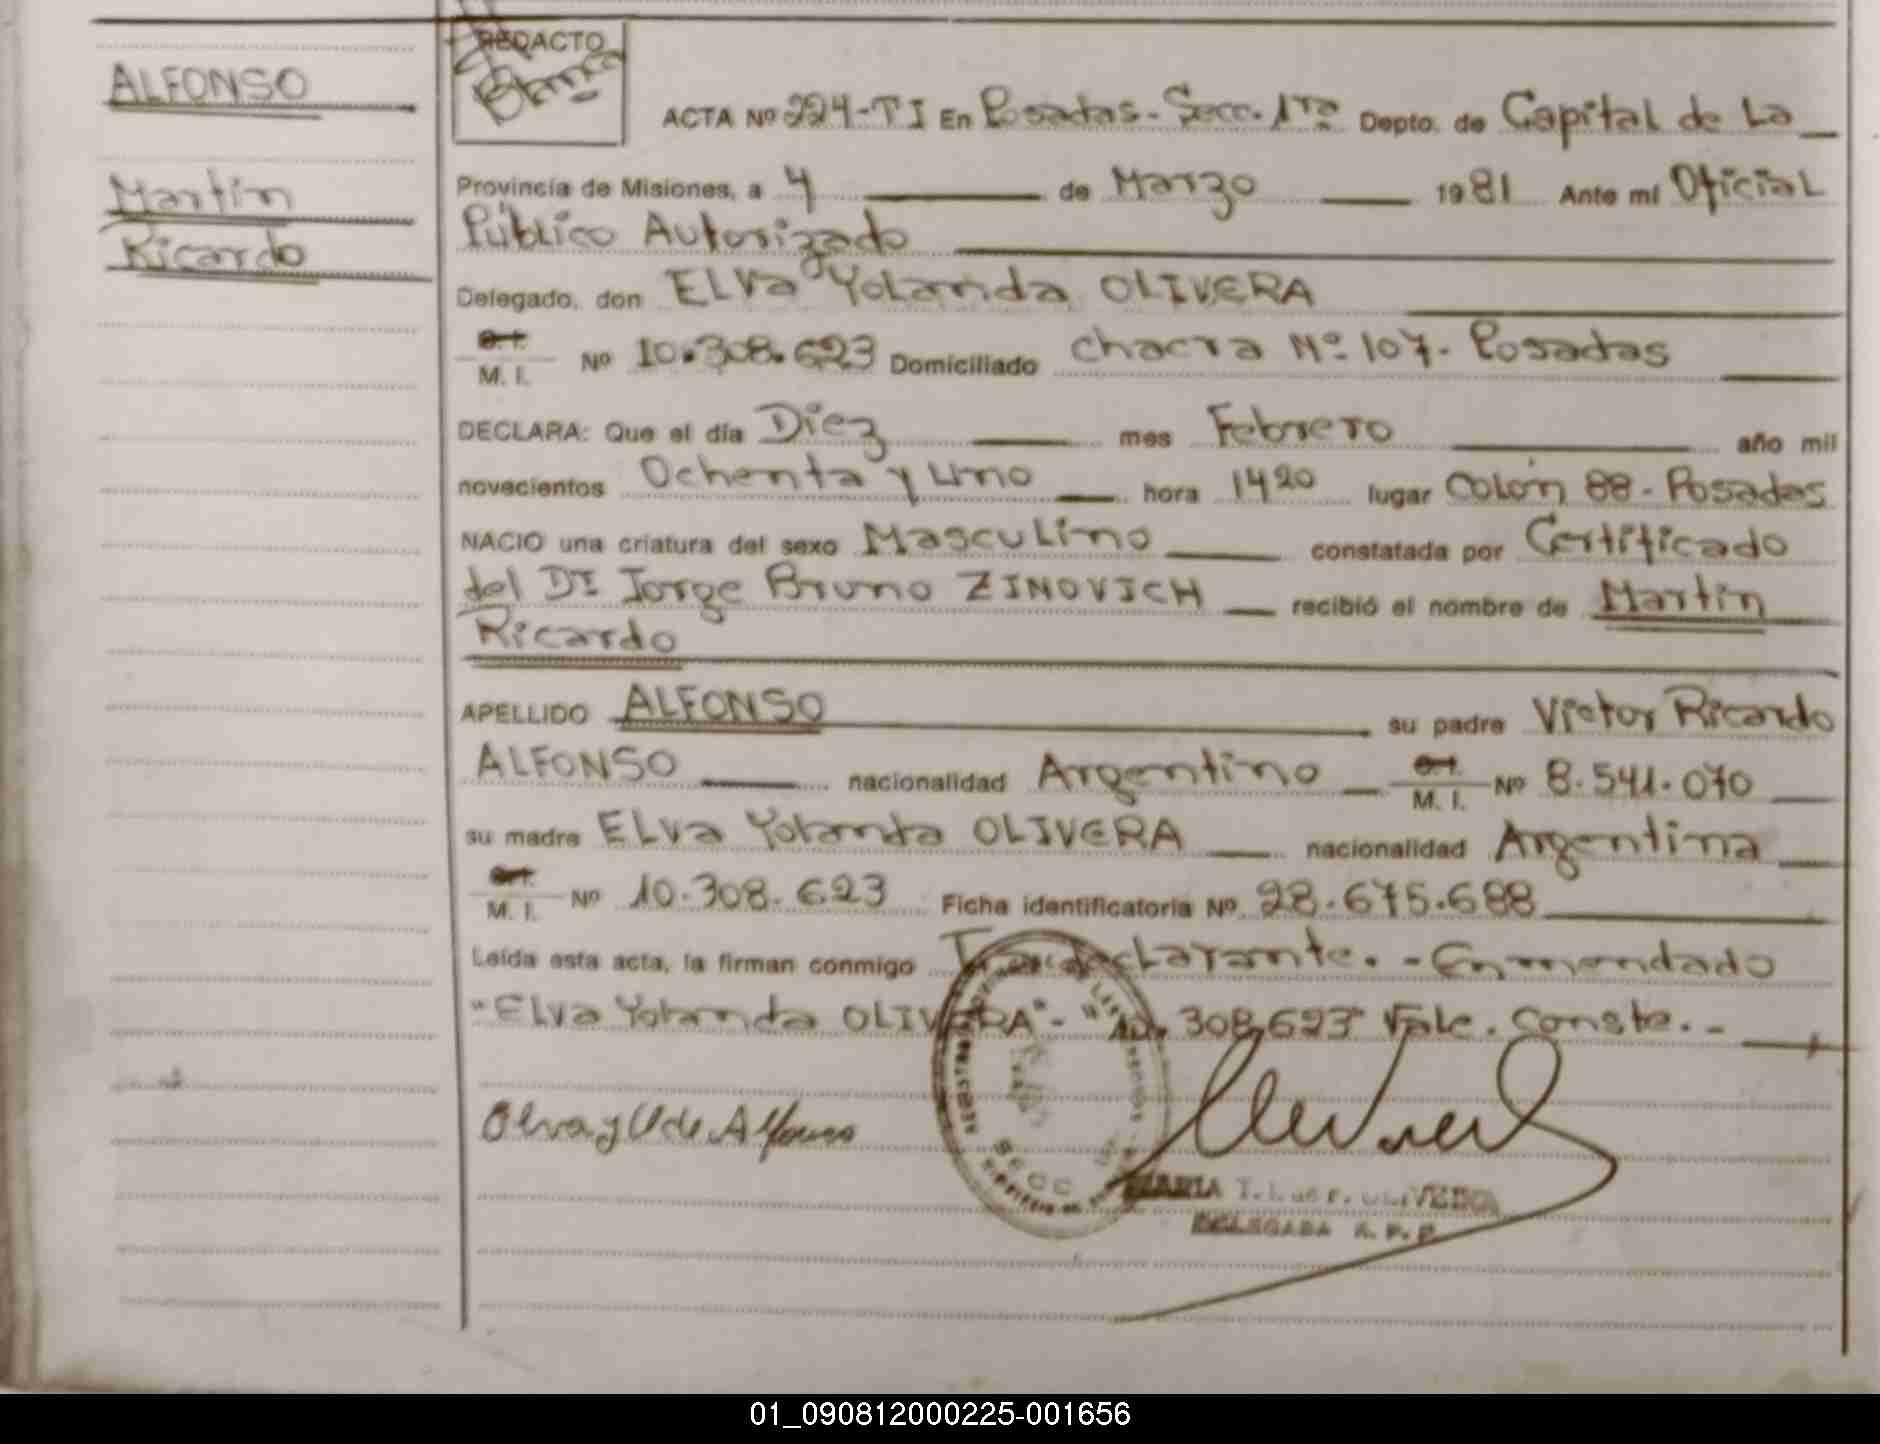 REDACTO
Blanca
ALFONSO
Martín
Ricardo
ACTA Nº 224-TI En Posadas-Secc. 1ra Depto. de Capital de La
Provincia de Misiones, a 4 de Marzo 1981 Ante mí Oficial
Público Autorizado
Delegado, don ELVa Yolanda OLIVERA
M. I. Nº 10.308.623 Domiciliado chacra Nº 107- Posadas
DECLARA: Que el día Diez mes Febrero año mil
novecientos Ochenta y Uno hora 1420 lugar Colón 88-Posadas
NACIO una criatura del sexo Masculino constatada por Certificado
del Dr Jorge Bruno ZINOVICH recibió el nombre de Martín
Ricardo
APELLIDO ALFONSO su padre Victor Ricardo
ALFONSO nacionalidad Argentino M. I. Nº 8.541.070
su madre ELva Yolanda OLIVERA nacionalidad Argentina
M. I. Nº 10.308.623 Ficha identificatoria Nº 28.675.688
Leída esta acta, la firman conmigo declarante.-Enmendado
"Elva Yolanda OLIVERA"- "10.308.623" Vale. Conste.-
de Alfonso
SECC
MARIA T. OLIVERA
DELEGADA R. P. P.
01_090812000225-001656